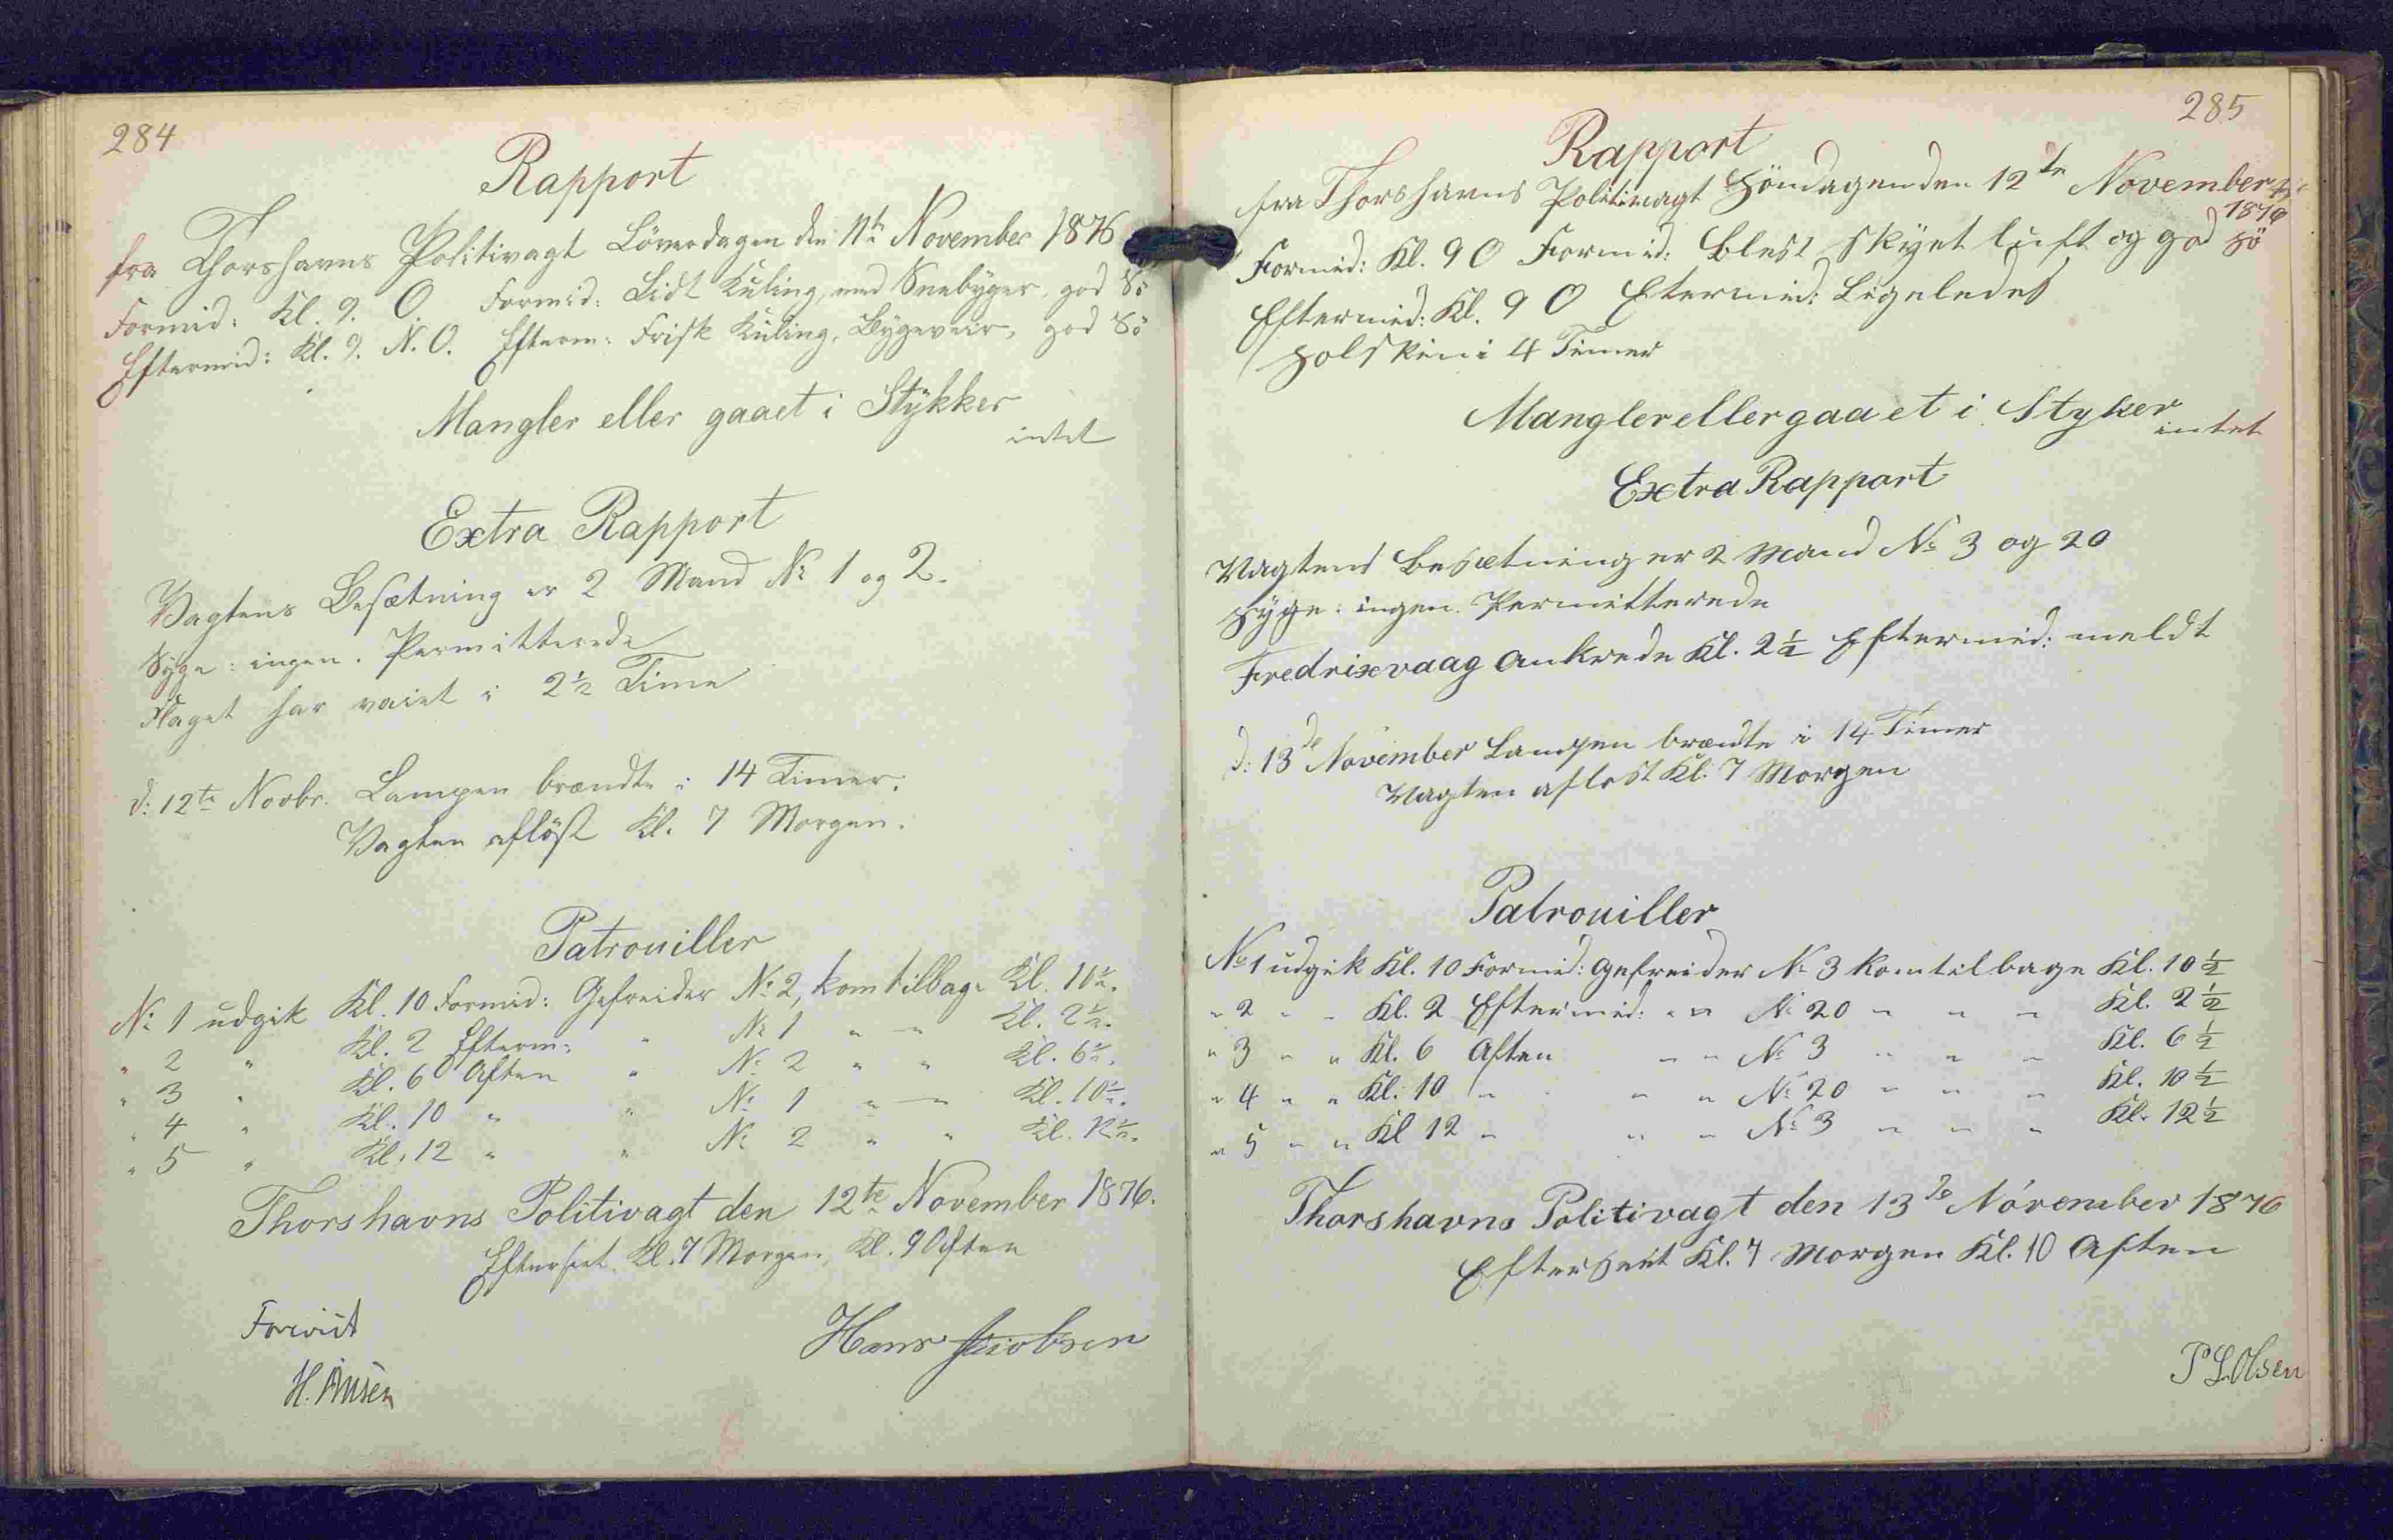 284
Rapport
fra Thorshavns Politivagt Löverdagen den 11te November 1876
Formid: Kl. 9. O. Formid: Lidt Kuling, med Snebyger, god Sö
Eftermid: Kl. 9. N.O. Efterm: Frisk Kuling, Bygeveir, god Sö
Mangler eller gaaet i Stykker
intet
Extra Rapport
Vagtens Besætning er 2 Mand No 1 og 2.
Syge: ingen. Permitterede
Flaget har vaiet i 2½ Time
d: 12te Novbr. Lampen brændte i 14 Timer.
Vagten aflöst Kl. 7 Morgen.
Patrouiller
No 1 udgik Kl. 10 Formid: Gefreider No 2, kom tilbage Kl. 10½.
" 2 " Kl. 2 Efterm: " No 1 " " Kl. 2½.
" 3 " Kl. 6 Aften " No 2 " " Kl. 6½.
" 4 " Kl. 10 " " No 1 " " Kl. 10½.
" 5 " Kl. 12 " " No 2 " " Kl. 12½.
Thorshavns Politivagt den 12te November 1876.
Efterseet Kl. 7 Morgen, Kl. 9 Aften
Foreviist
Hans Jacobsen
H.
285
Rapport
fra Thorshavns Politivagt Söndagen den 12te November
1876
Formid: Kl. 9 O Formid: Blest Skyet luft og god Sö
Eftermid: Kl. 9 O Etermid: Ligeledes
Solskin i 4 Timer
Mangler eller gaaet i Styker
intet
Extra Rappart
Vagtens Besætning er 2 Mand No 3 og 20
Syge: ingen. Permitterede
Fredrixvaag Ankrede Kl. 2½ Eftermid: meldt
d: 13de November Lampen brændte i 14 Timer
Vagten aflost Kl. 7 Morgen
Patrouiller
No 1 udgik Kl. 10 Formid: Gefreider No 3 kom tilbage Kl. 10½
" 2 " " Kl. 2 Eftermid: " " No 20 " " " Kl. 2½
" 3 " " Kl. 6 Aften " " No 3 " " " Kl. 6½
" 4 " " Kl. 10 " " " No 20 " " " Kl. 10½
" 5 " " Kl 12 " " " No 3 " " " Kl. 12½
Thorshavns Politivagt den 13de November 1876
Efterseet Kl. 7 Morgen Kl. 10 Aften
P L Olsen